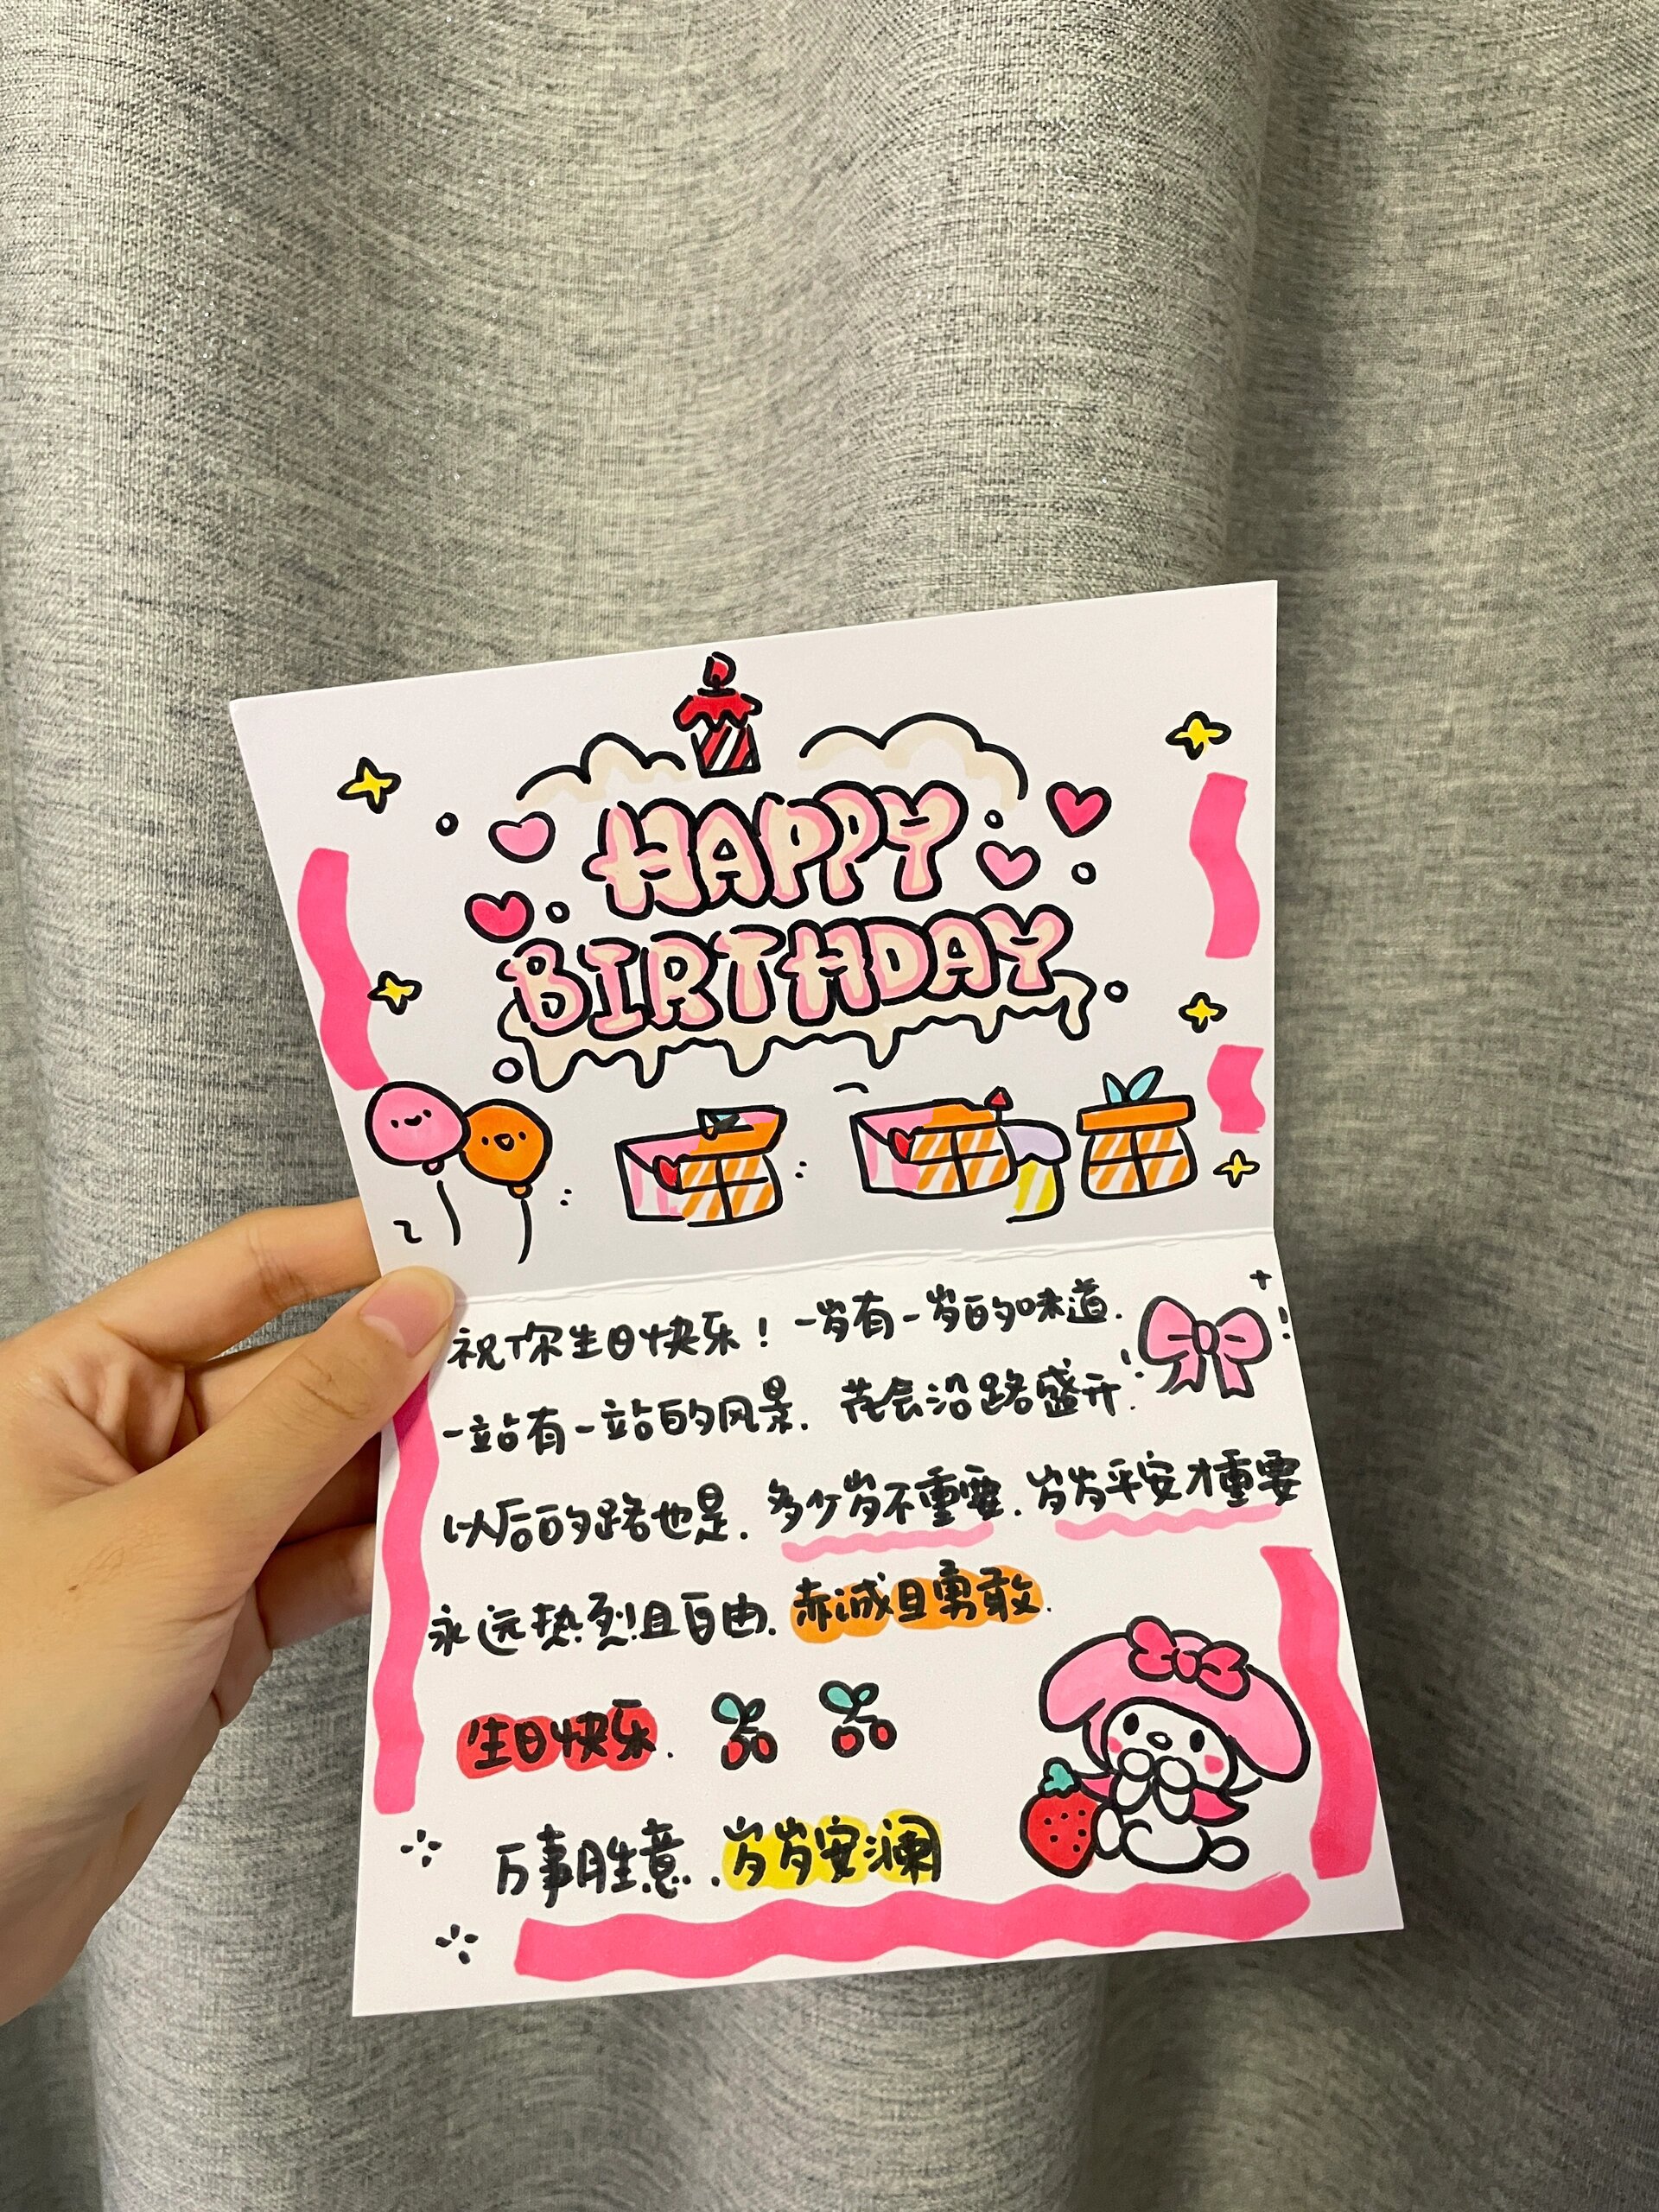 HAPPY
BIRTHDAY
祝你生日快乐！一岁有一岁的味道.
一站有一站的风景. 花会沿路盛开.
以后的路也是. 多少岁不重要. 岁岁平安才重要
永远热烈且自由. 赤诚且勇敢.
生日快乐.
万事胜意. 岁岁安澜